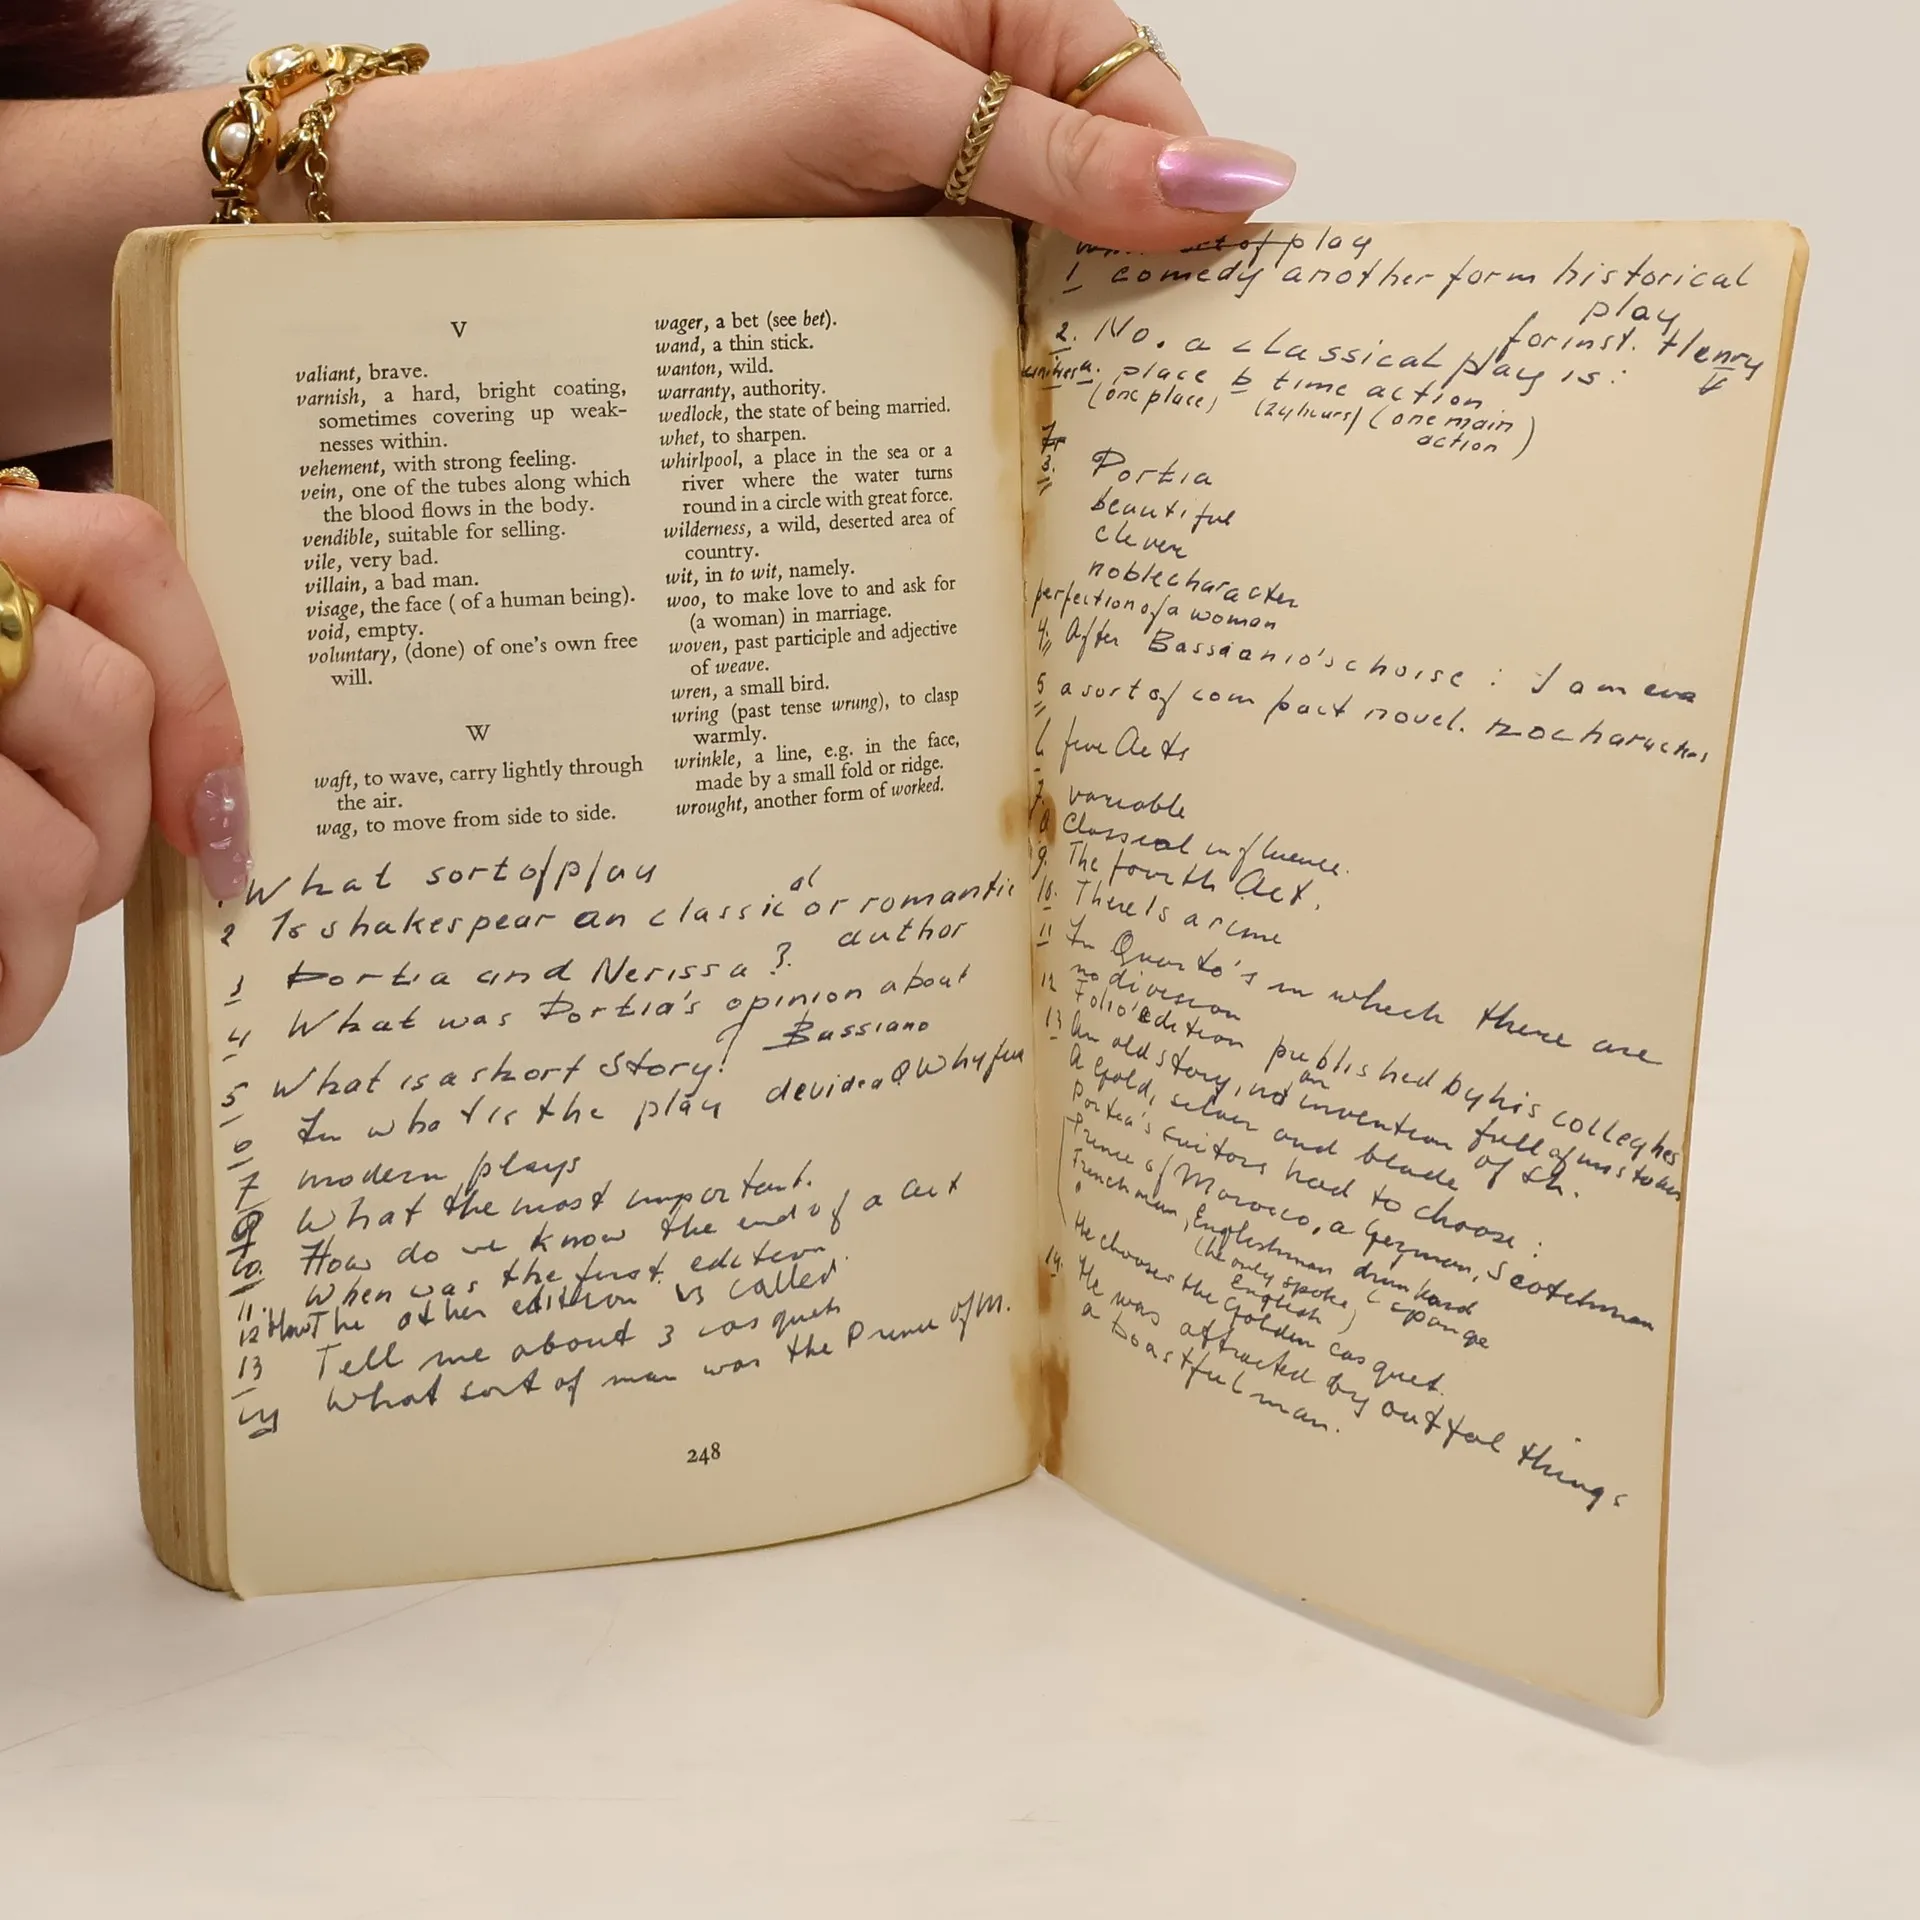 V
valiant, brave.
varnish, a hard, bright coating,
sometimes covering up weak-
nesses within.
vehement, with strong feeling.
vein, one of the tubes along which
the blood flows in the body.
vendible, suitable for selling.
vile, very bad.
villain, a bad man.
visage, the face ( of a human being).
void, empty.
voluntary, (done) of one's own free
will.
W
waft, to wave, carry lightly through
the air.
wag, to move from side to side.
wager, a bet (see bet).
wand, a thin stick.
wanton, wild.
warranty, authority.
wedlock, the state of being married.
whet, to sharpen.
whirlpool, a place in the sea or a
river where the water turns
round in a circle with great force.
wilderness, a wild, deserted area of
country.
wit, in to wit, namely.
woo, to make love to and ask for
(a woman) in marriage.
woven, past participle and adjective
of weave.
wren, a small bird.
wring (past tense wrung), to clasp
warmly.
wrinkle, a line, e.g. in the face,
made by a small fold or ridge.
wrought, another form of worked.
What sort of play
2 Is shakespear an classical or romantic
author
3 Portia and Nerissa?
4 What was Portia's opinion about
Bassiano
5 What is a short Story?
6 In what is the play devided? Why five
7 modern plays
9 What the most important.
10. How do we know the end of a act
11. When was the first edition.
12 How The other edition is called.
13 Tell me about 3 casquets
14 What sort of man was the Prince of M.
248
sort of play
1 comedy another form historical
play
for inst. Henry V
2. No. a classical play is:
unities a. place b time action
(one place) (24 hours) (one main
action)
3.
Portia
beautiful
clever
noble character
perfection of a woman
4. After Bassianio's choise: I am
5 a sort of compact novel. no characters
6 five Acts
7. variable
8 Classical influence.
9. The fourth Act.
10. There Is a rime
11 In Quarto's in which there are
no division
12 Folio edition published by his colleghes
13 An old story, not an invention of Sh.
A gold, silver and
Portia's suitors had to choose:
Prince of Morocco, a German, Scotchman
Frenchman, Englishman drunkard
(he only spoke (spange
English)
He chooses the Golden casquet.
14. He was attracted by outful things
a boastful man.